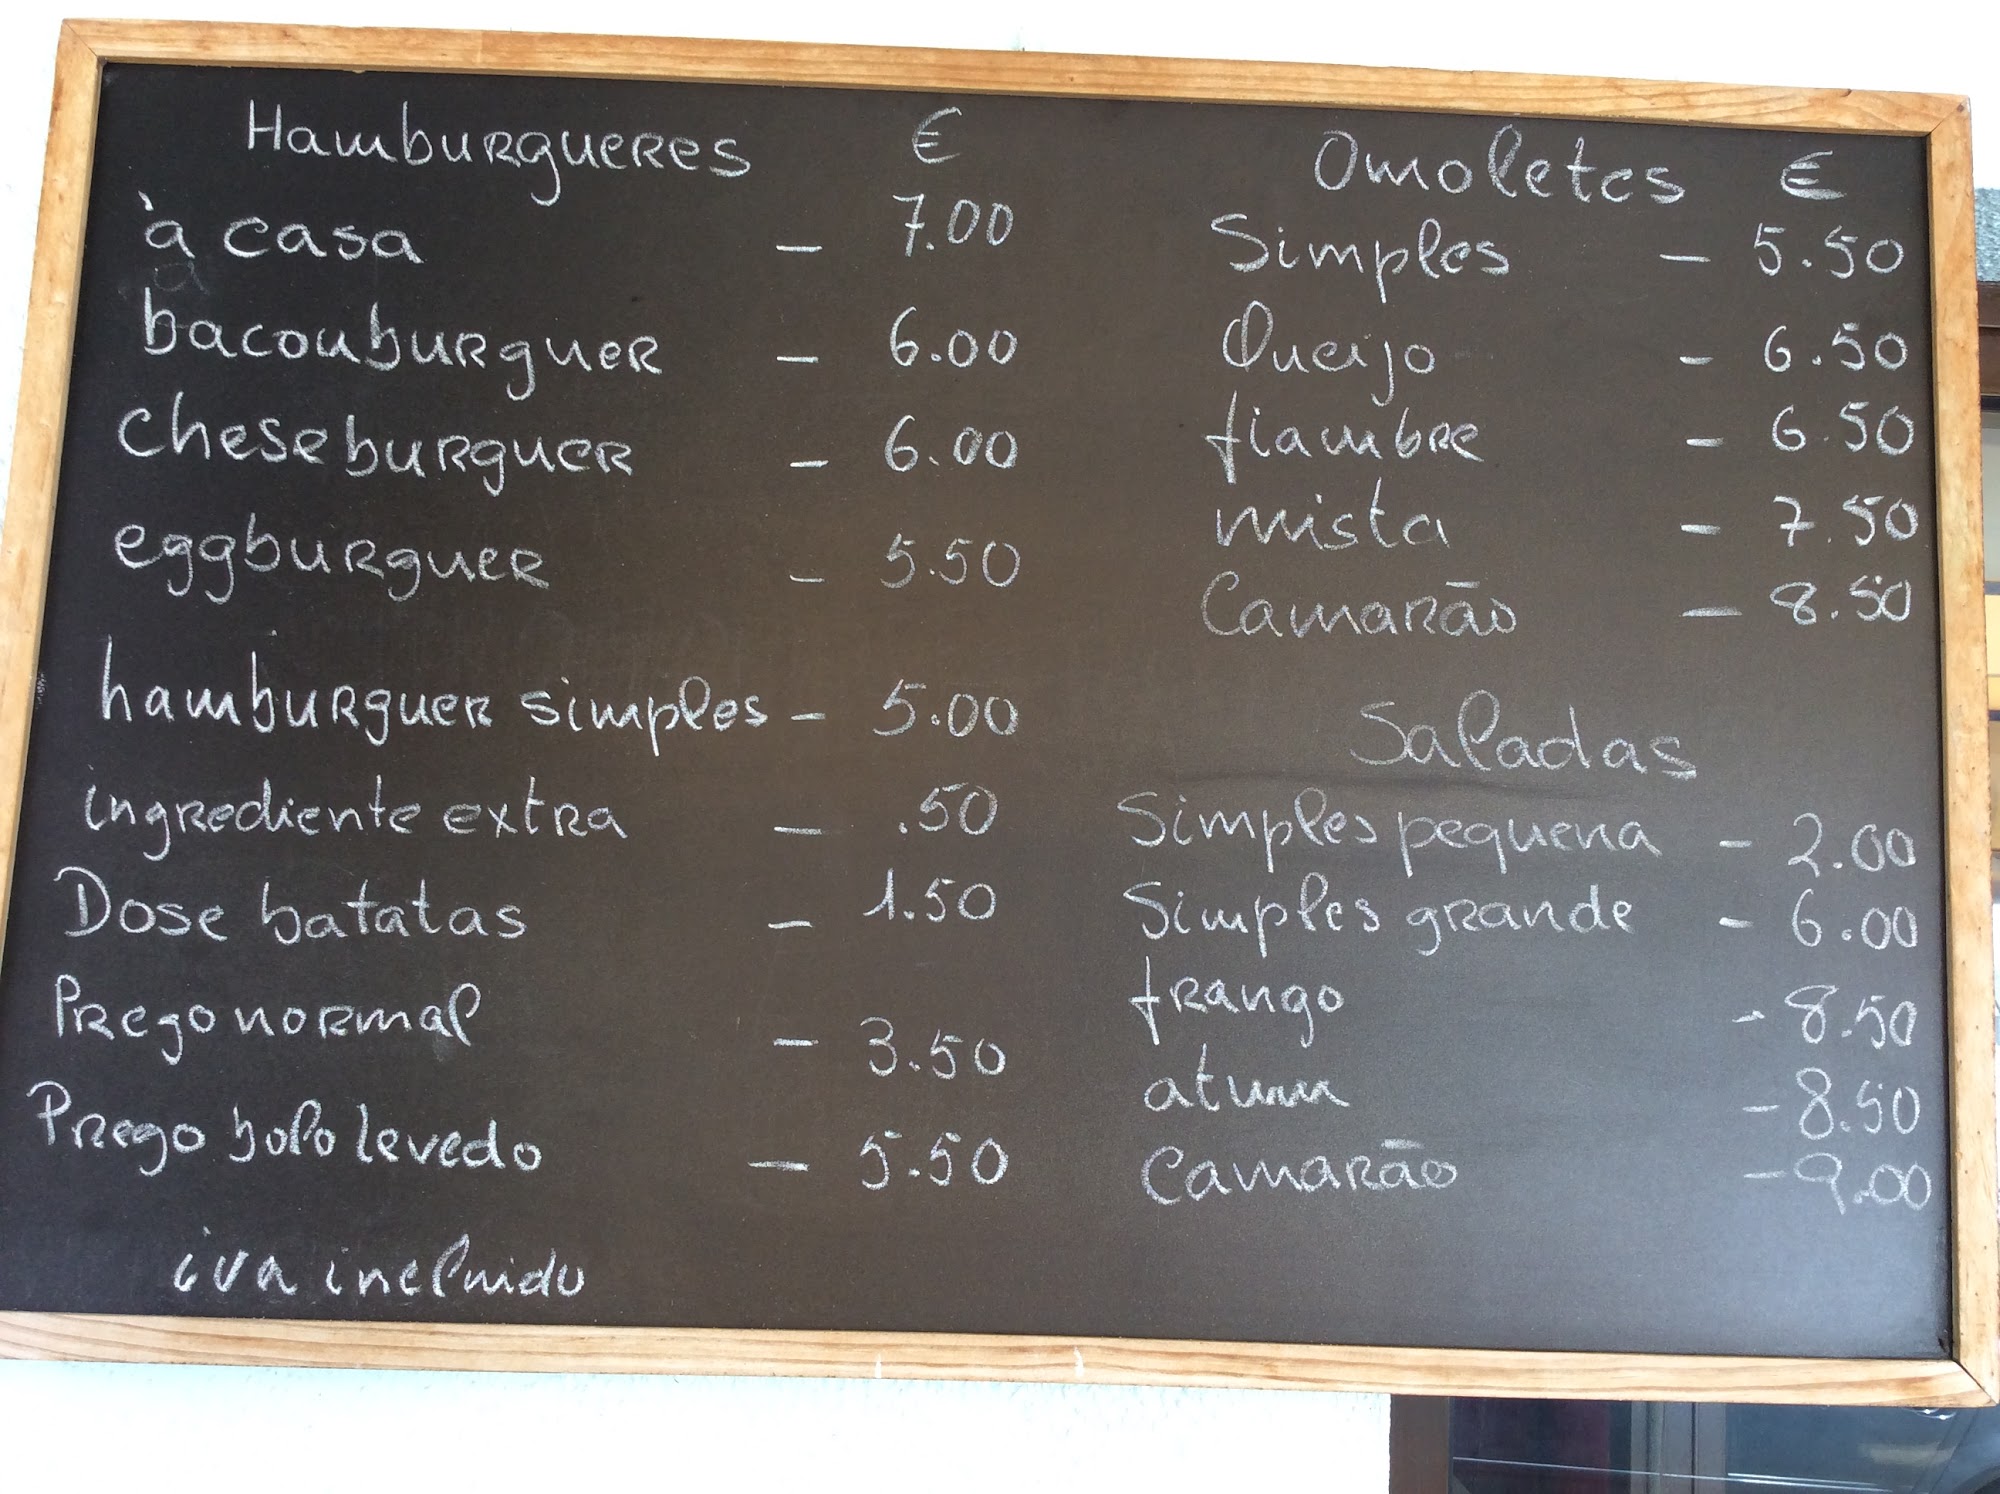 Hamburgueres €
à casa - 7.00
baconburguer - 6.00
cheseburguer - 6.00
eggburguer - 5.50
hamburguer simples - 5.00
ingrediente extra - .50
Dose batatas - 1.50
Prego normal - 3.50
Prego bolo levedo - 5.50
iva incluido
Omoletes €
Simples - 5.50
Queijo - 6.50
fiambre - 6.50
mista - 7.50
Camarão - 8.50
Saladas
Simples pequena - 2.00
Simples grande - 6.00
frango - 8.50
atum - 8.50
Camarão - 9.00